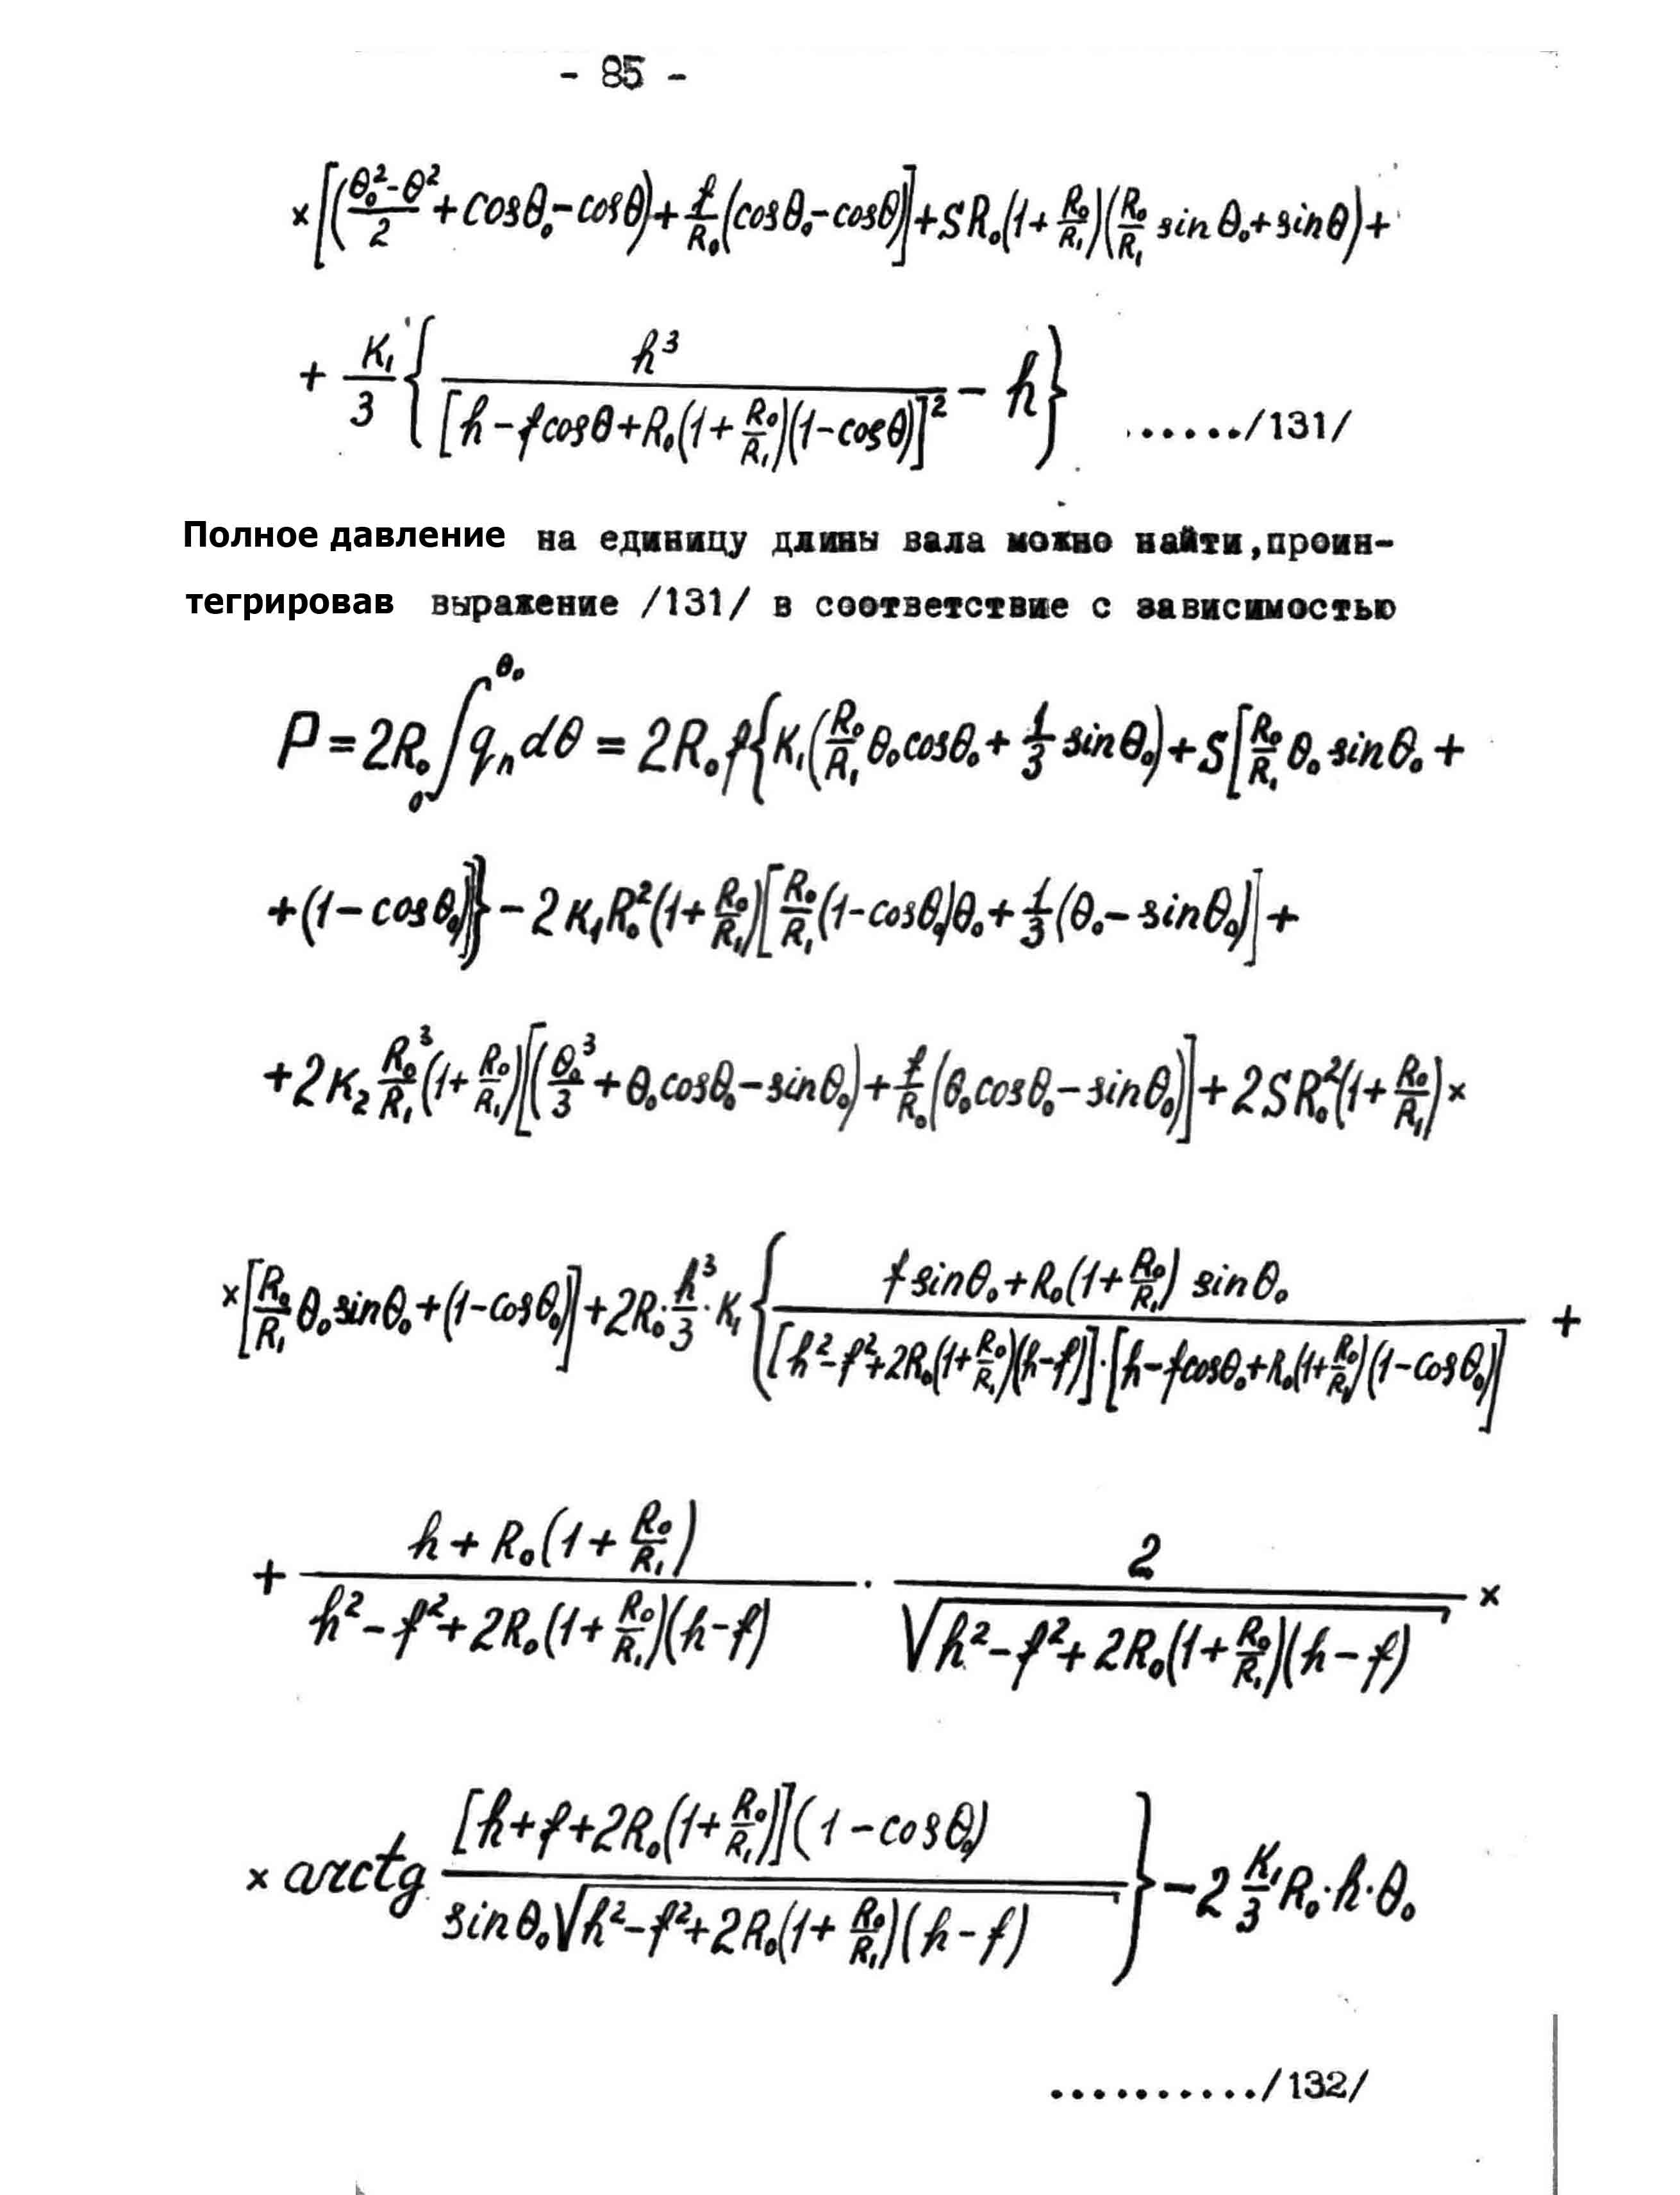 - 85 -
×[(θ₀²-θ²/2 + cosθ₀-cosθ)+f/R₀(cosθ₀-cosθ)]+SR₀(1+R₀/R₁)(R₀/R₁ sin θ₀+sinθ)+
+ K₁/3 { h³/[h-fcosθ+R₀(1+R₀/R₁)(1-cosθ)]² - h} ....../131/
Полное давление на единицу длины вала можно найти,проин-
тегрировав выражение /131/ в соответствие с зависимостью
P=2R₀∫₀^θ₀ qₙdθ = 2R₀f{K₁(R₀/R₁ θ₀cosθ₀+ 1/3 sinθ₀)+S[R₀/R₁ θ₀ sinθ₀ +
+(1-cosθ₀)]}-2K₁R₀²(1+R₀/R₁)[R₀/R₁(1-cosθ₀)θ₀+1/3(θ₀-sinθ₀)]+
+2K₂ R₀³/R₁(1+R₀/R₁)[(θ₀³/3+θ₀cosθ₀-sinθ₀)+f/R₀(θ₀cosθ₀-sinθ₀)]+2SR₀²(1+R₀/R₁)×
×[R₀/R₁ θ₀sinθ₀+(1-cosθ₀)]+2R₀·h³/3·K₁{ fsinθ₀+R₀(1+R₀/R₁) sinθ₀/[h²-f²+2R₀(1+R₀/R₁)(h-f)]·[h-fcosθ₀+R₀(1+R₀/R₁)(1-cosθ₀)] +
+ h+R₀(1+R₀/R₁)/h²-f²+2R₀(1+R₀/R₁)(h-f) · 2/√h²-f²+2R₀(1+R₀/R₁)(h-f) ×
× arctg [h+f+2R₀(1+R₀/R₁)](1-cosθ₀)/sinθ₀√h²-f²+2R₀(1+R₀/R₁)(h-f) }-2 K₁/3 R₀·h·θ₀
........../132/